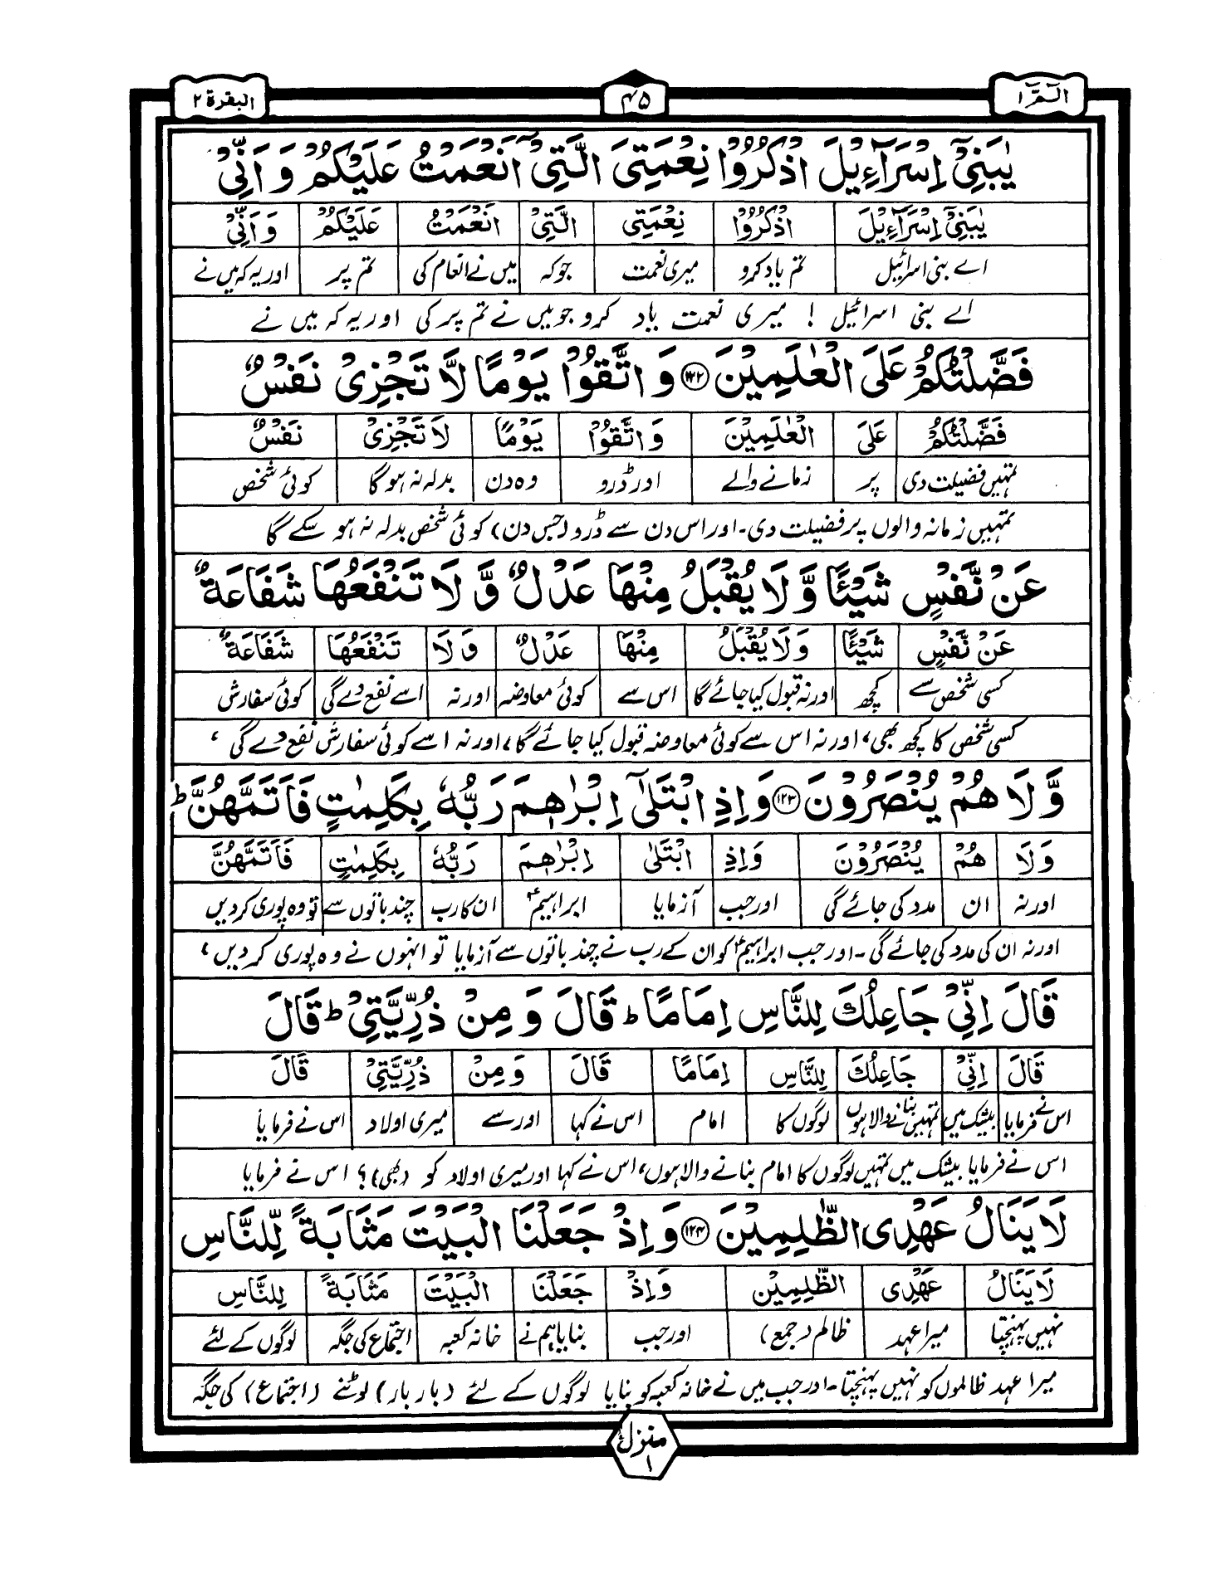 الٓمّٓ ١ ۴۵ البقرة ٢
يٰبَنِيْٓ اِسْرَآءِيْلَ اذْكُرُوْا نِعْمَتِيَ الَّتِيْٓ اَنْعَمْتُ عَلَيْكُمْ وَ اَنِّيْ
يٰبَنِيْٓ اِسْرَآءِيْلَ اذْكُرُوْا نِعْمَتِيَ الَّتِيْ اَنْعَمْتُ عَلَيْكُمْ وَ اَنِّيْ
اے بنی اسرائیل تم یاد کرو میری نعمت جو کہ میں نے انعام کی تم پر اور یہ کہ میں نے
اے بنی اسرائیل ! میری نعمت یاد کرو جو میں نے تم پر کی اور یہ کہ میں نے
فَضَّلْتُكُمْ عَلَى الْعٰلَمِيْنَ ﴿۱۲۲﴾ وَ اتَّقُوْا يَوْمًا لَّا تَجْزِيْ نَفْسٌ
فَضَّلْتُكُمْ عَلَى الْعٰلَمِيْنَ وَ اتَّقُوْا يَوْمًا لَا تَجْزِيْ نَفْسٌ
تمہیں فضیلت دی پر زمانے والے اور ڈرو وہ دن بدلہ نہ ہوگا کوئی شخص
تمہیں زمانہ والوں پر فضیلت دی۔ اور اس دن سے ڈرو (جس دن) کوئی شخص بدلہ نہ ہو سکے گا
عَنْ نَّفْسٍ شَيْـًٔا وَّ لَا يُقْبَلُ مِنْهَا عَدْلٌ وَّ لَا تَنْفَعُهَا شَفَاعَةٌ
عَنْ نَّفْسٍ شَيْـًٔا وَ لَا يُقْبَلُ مِنْهَا عَدْلٌ وَ لَا تَنْفَعُهَا شَفَاعَةٌ
کسی شخص سے کچھ اور نہ قبول کیا جائے گا اس سے کوئی معاوضہ اور نہ اسے نفع دے گی کوئی سفارش
کسی شخص کا کچھ بھی، اور نہ اس سے کوئی معاوضہ قبول کیا جائے گا، اور نہ اسے کوئی سفارش نفع دے گی ،
وَّ لَا هُمْ يُنْصَرُوْنَ ﴿۱۲۳﴾ وَ اِذِ ابْتَلٰٓى اِبْرٰهٖمَ رَبُّهٗ بِكَلِمٰتٍ فَاَتَمَّهُنَّ ؕ
وَ لَا هُمْ يُنْصَرُوْنَ وَ اِذِ ابْتَلٰى اِبْرٰهٖمَ رَبُّهٗ بِكَلِمٰتٍ فَاَتَمَّهُنَّ
اور نہ ان مدد کی جائے گی اور جب آزمایا ابراہیمؑ ان کا رب چند باتوں سے تو وہ پوری کر دیں
اور نہ ان کی مدد کی جائے گی۔ اور جب ابراہیمؑ کو ان کے رب نے چند باتوں سے آزمایا تو انہوں نے وہ پوری کر دیں ،
قَالَ اِنِّيْ جَاعِلُكَ لِلنَّاسِ اِمَامًا ؕ قَالَ وَ مِنْ ذُرِّيَّتِيْ ؕ قَالَ
قَالَ اِنِّيْ جَاعِلُكَ لِلنَّاسِ اِمَامًا قَالَ وَ مِنْ ذُرِّيَّتِيْ قَالَ
اس نے فرمایا بیشک میں تمہیں بنانے والا ہوں لوگوں کا امام اس نے کہا اور سے میری اولاد اس نے فرمایا
اس نے فرمایا بیشک میں تمہیں لوگوں کا امام بنانے والا ہوں، اس نے کہا اور میری اولاد کو (بھی)؟ اس نے فرمایا
لَا يَنَالُ عَهْدِي الظّٰلِمِيْنَ ﴿۱۲۴﴾ وَ اِذْ جَعَلْنَا الْبَيْتَ مَثَابَةً لِّلنَّاسِ
لَا يَنَالُ عَهْدِي الظّٰلِمِيْنَ وَ اِذْ جَعَلْنَا الْبَيْتَ مَثَابَةً لِلنَّاسِ
نہیں پہنچتا میرا عہد ظالم (جمع) اور جب بنایا ہم نے خانہ کعبہ اجتماع کی جگہ لوگوں کے لئے
میرا عہد ظالموں کو نہیں پہنچتا۔ اور جب میں نے خانہ کعبہ کو بنایا لوگوں کے لئے (بار بار) لوٹنے (اجتماع) کی جگہ
منزل
١